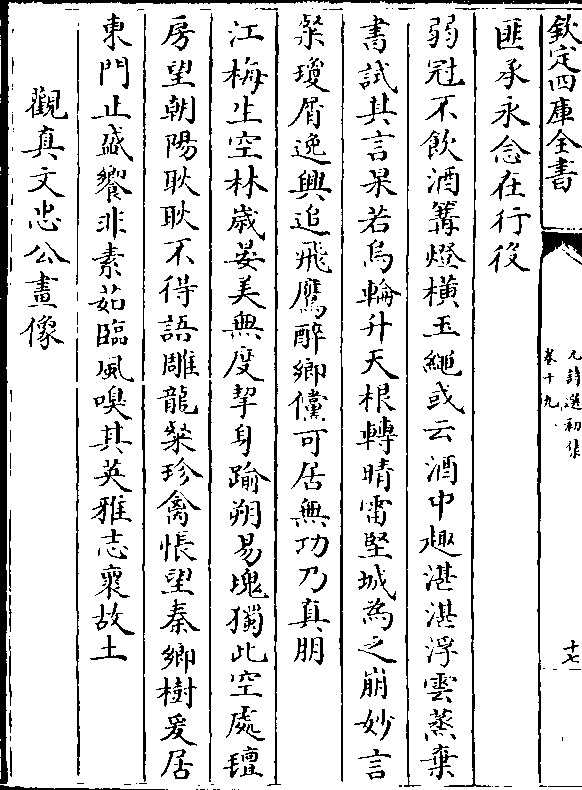 欽定四庫全書
元詩選初集
卷十九
十七
匪承永念在行役
弱冠不飲酒篝燈橫玉繩或云酒中趣湛湛浮雲蒸棄
書試其言果若烏輪升天根轉晴雷堅城為之崩妙言
粲瓊屑逸興追飛鷹醉鄉儻可居無功乃真朋
江梅生空林歲晏美無度挈身踰朔易塊獨此空處璮
房望朝陽耿耿不得語雕龍粲珍禽悵望秦鄉樹爰居
東門止盛饗非素茹臨風嗅其英雅志褱故土
觀真文忠公畫像